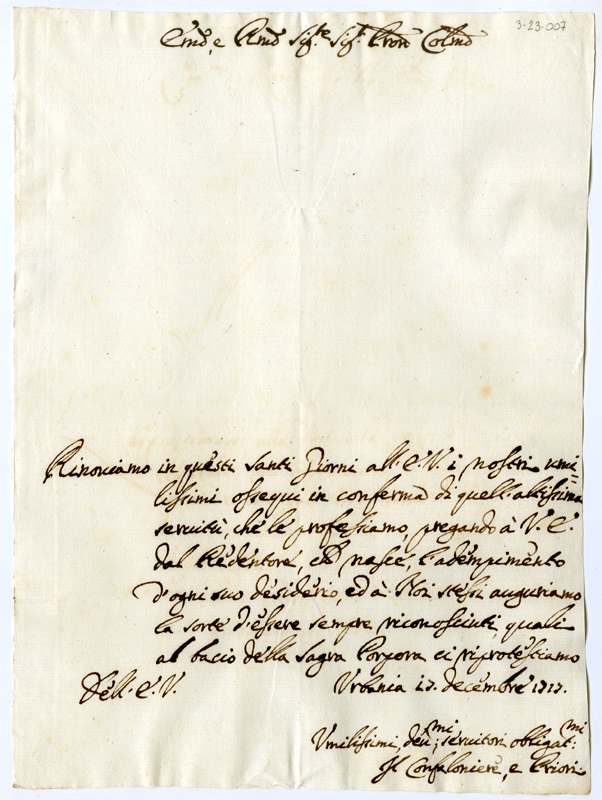 3-23-007
Emõ, e Rmõ Sig.re Sig.r Pron Colmõ
Rinoviamo in questi santi Giorni all'E.V. i nostri umi=
lissimi ossequi in conferma di quell'altissima
servitù, che le professiamo, pregando à V.E.
dal Redentore, che nasce, l'adempimento
d'ogni suo desiderio, ed à Noi stessi auguriamo
la sorte d'essere sempre riconosciuti, quali
al bacio della Sagra Porpora ci riprotestiamo
Dell'E.V. Urbania 17. decembre 1717.
Umilissimi, deumi: servitori obligatmi:
Il Confaloniere, e Priori